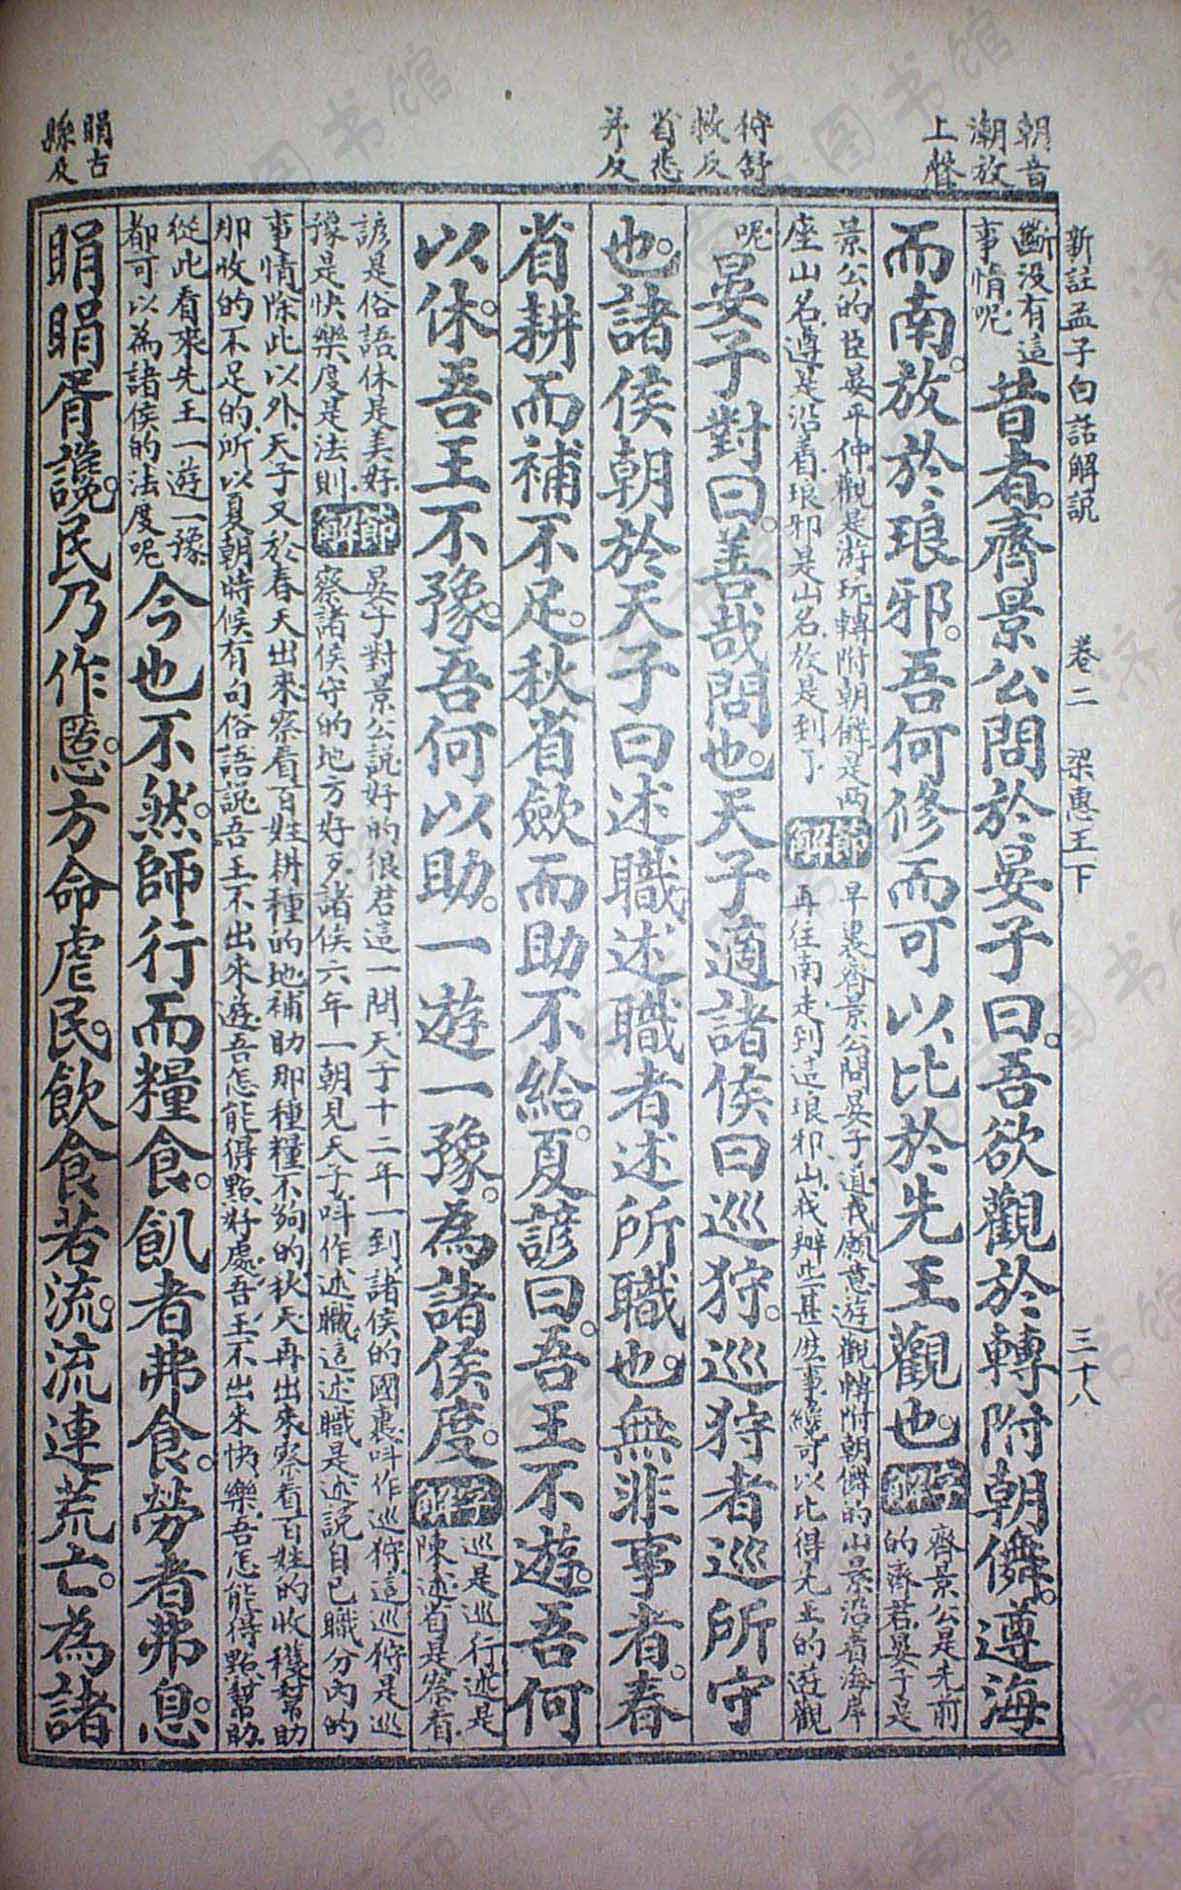 新註孟子白話解説　卷二　梁惠王下　三十八
朝音
潮放
上聲
狩舒
救反
省悉
井反
睊古
縣反
斷没有這
事情呢
昔者齊景公問於晏子曰吾欲觀於轉附朝儛遵海
而南放於琅邪吾何修而可以比於先王觀也
字解
齊景公是先前
的齊君晏子是
景公的臣晏平仲觀是游玩轉附朝儛是兩
座山名遵是沿着琅邪是山名放是到了
節解
早裏齊景公問晏子道我願意遊觀轉附朝儛的山景沿着海岸
再往南走到這琅邪山我辦些甚麽事纔可以比得先王的遊觀
呢
晏子對曰善哉問也天子適諸侯曰巡狩巡狩者巡所守
也諸侯朝於天子曰述職述職者述所職也無非事者春
省耕而補不足秋省斂而助不給夏諺曰吾王不遊吾何
以休吾王不豫吾何以助一遊一豫為諸侯度
字解
巡是巡行述是
陳述省是察看
諺是俗語休是美好
豫是快樂度是法則
節解
晏子對景公説好的很君這一問天子十二年一到諸侯的國裏呌作巡狩這巡狩是巡
察諸侯守的地方好歹諸侯六年一朝見天子呌作述職這述職是述説自已職分内的
事情除此以外天子又於春天出來察看百姓耕種的地補助那種糧不夠的秋天再出來察看百姓的收穫幫助
那收的不足的所以夏朝時候有句俗語説吾王不出來遊吾怎能得點好處吾王不出來快樂吾怎能得點幫助
從此看來先王一遊一豫
都可以為諸侯的法度呢
今也不然師行而糧食飢者弗食勞者弗息
睊睊胥讒民乃作慝方命虐民飲食若流流連荒亡為諸